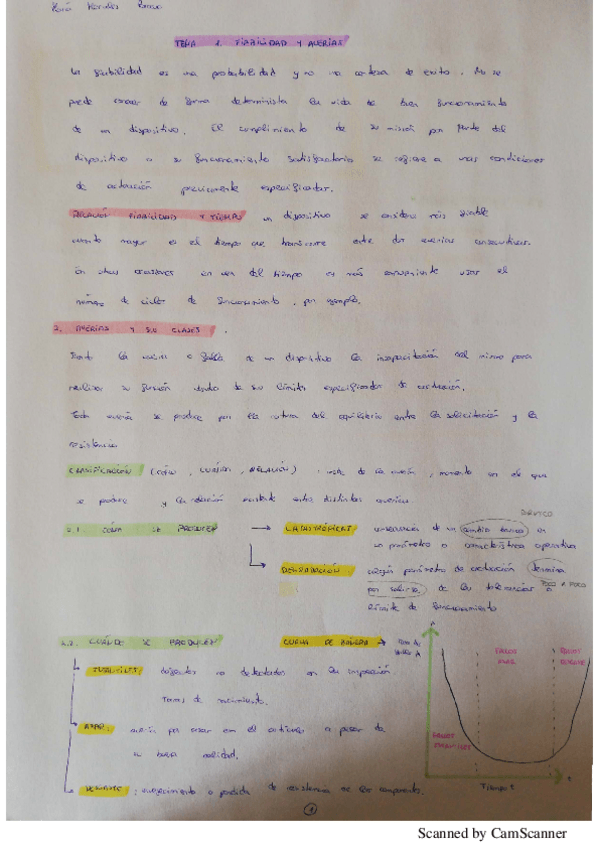 TEMA 2. FIABILIDAD Y AVERÍAS
La fiabilidad es una probabilidad y no una certeza de éxito. No se
puede conocer de forma determinista la vida de buen funcionamiento
de un dispositivo. El cumplimiento de su misión por parte del
dispositivo o su funcionamiento satisfactorio se refiere a unas condiciones
de actuación previamente especificadas.
RELACIÓN FIABILIDAD Y TIEMPO un dispositivo se considera más fiable
cuanto mayor es el tiempo que transcurre entre dos averías consecutivas.
En otras ocasiones en vez del tiempo es más conveniente usar el
número de ciclos de funcionamiento, por ejemplo.
2. AVERÍAS Y SUS CLASES.
la avería o fallo de un dispositivo la incapacitación del mismo para
realizar su función dentro de sus límites especificados de actuación.
Toda avería se produce por la rotura del equilibrio entre la solicitación y la
resistencia
CLASIFICACIÓN (CÓMO, CUÁNDO, RELACIÓN) : de la avería, momento en el que
se produce y la relación existente entre distintas averías.
BRUSCO
2.1 CÓMO SE PRODUCEN → CATASTRÓFICAS consecuencia de un cambio brusco en
un parámetro o característica operativa
DEGRADACIÓN algún parámetro de actuación termina
POCO A POCO
por salirse de las tolerancias o
límite de funcionamiento
2.2. CUÁNDO SE PRODUCEN CURVA DE BAÑERA → TASA DE
INFANTILES defectos no detectados en la inspección
Tasas de nacimiento.
AZAR: avería por azar en el artículo a pesar de
su buena calidad.
DESGASTE: envejecimiento o pérdida de resistencia de los componentes.
FALLOS INFANTILES
FALLOS AZAR
FALLOS DESGASTE
TIEMPO t
1
Scanned by CamScanner